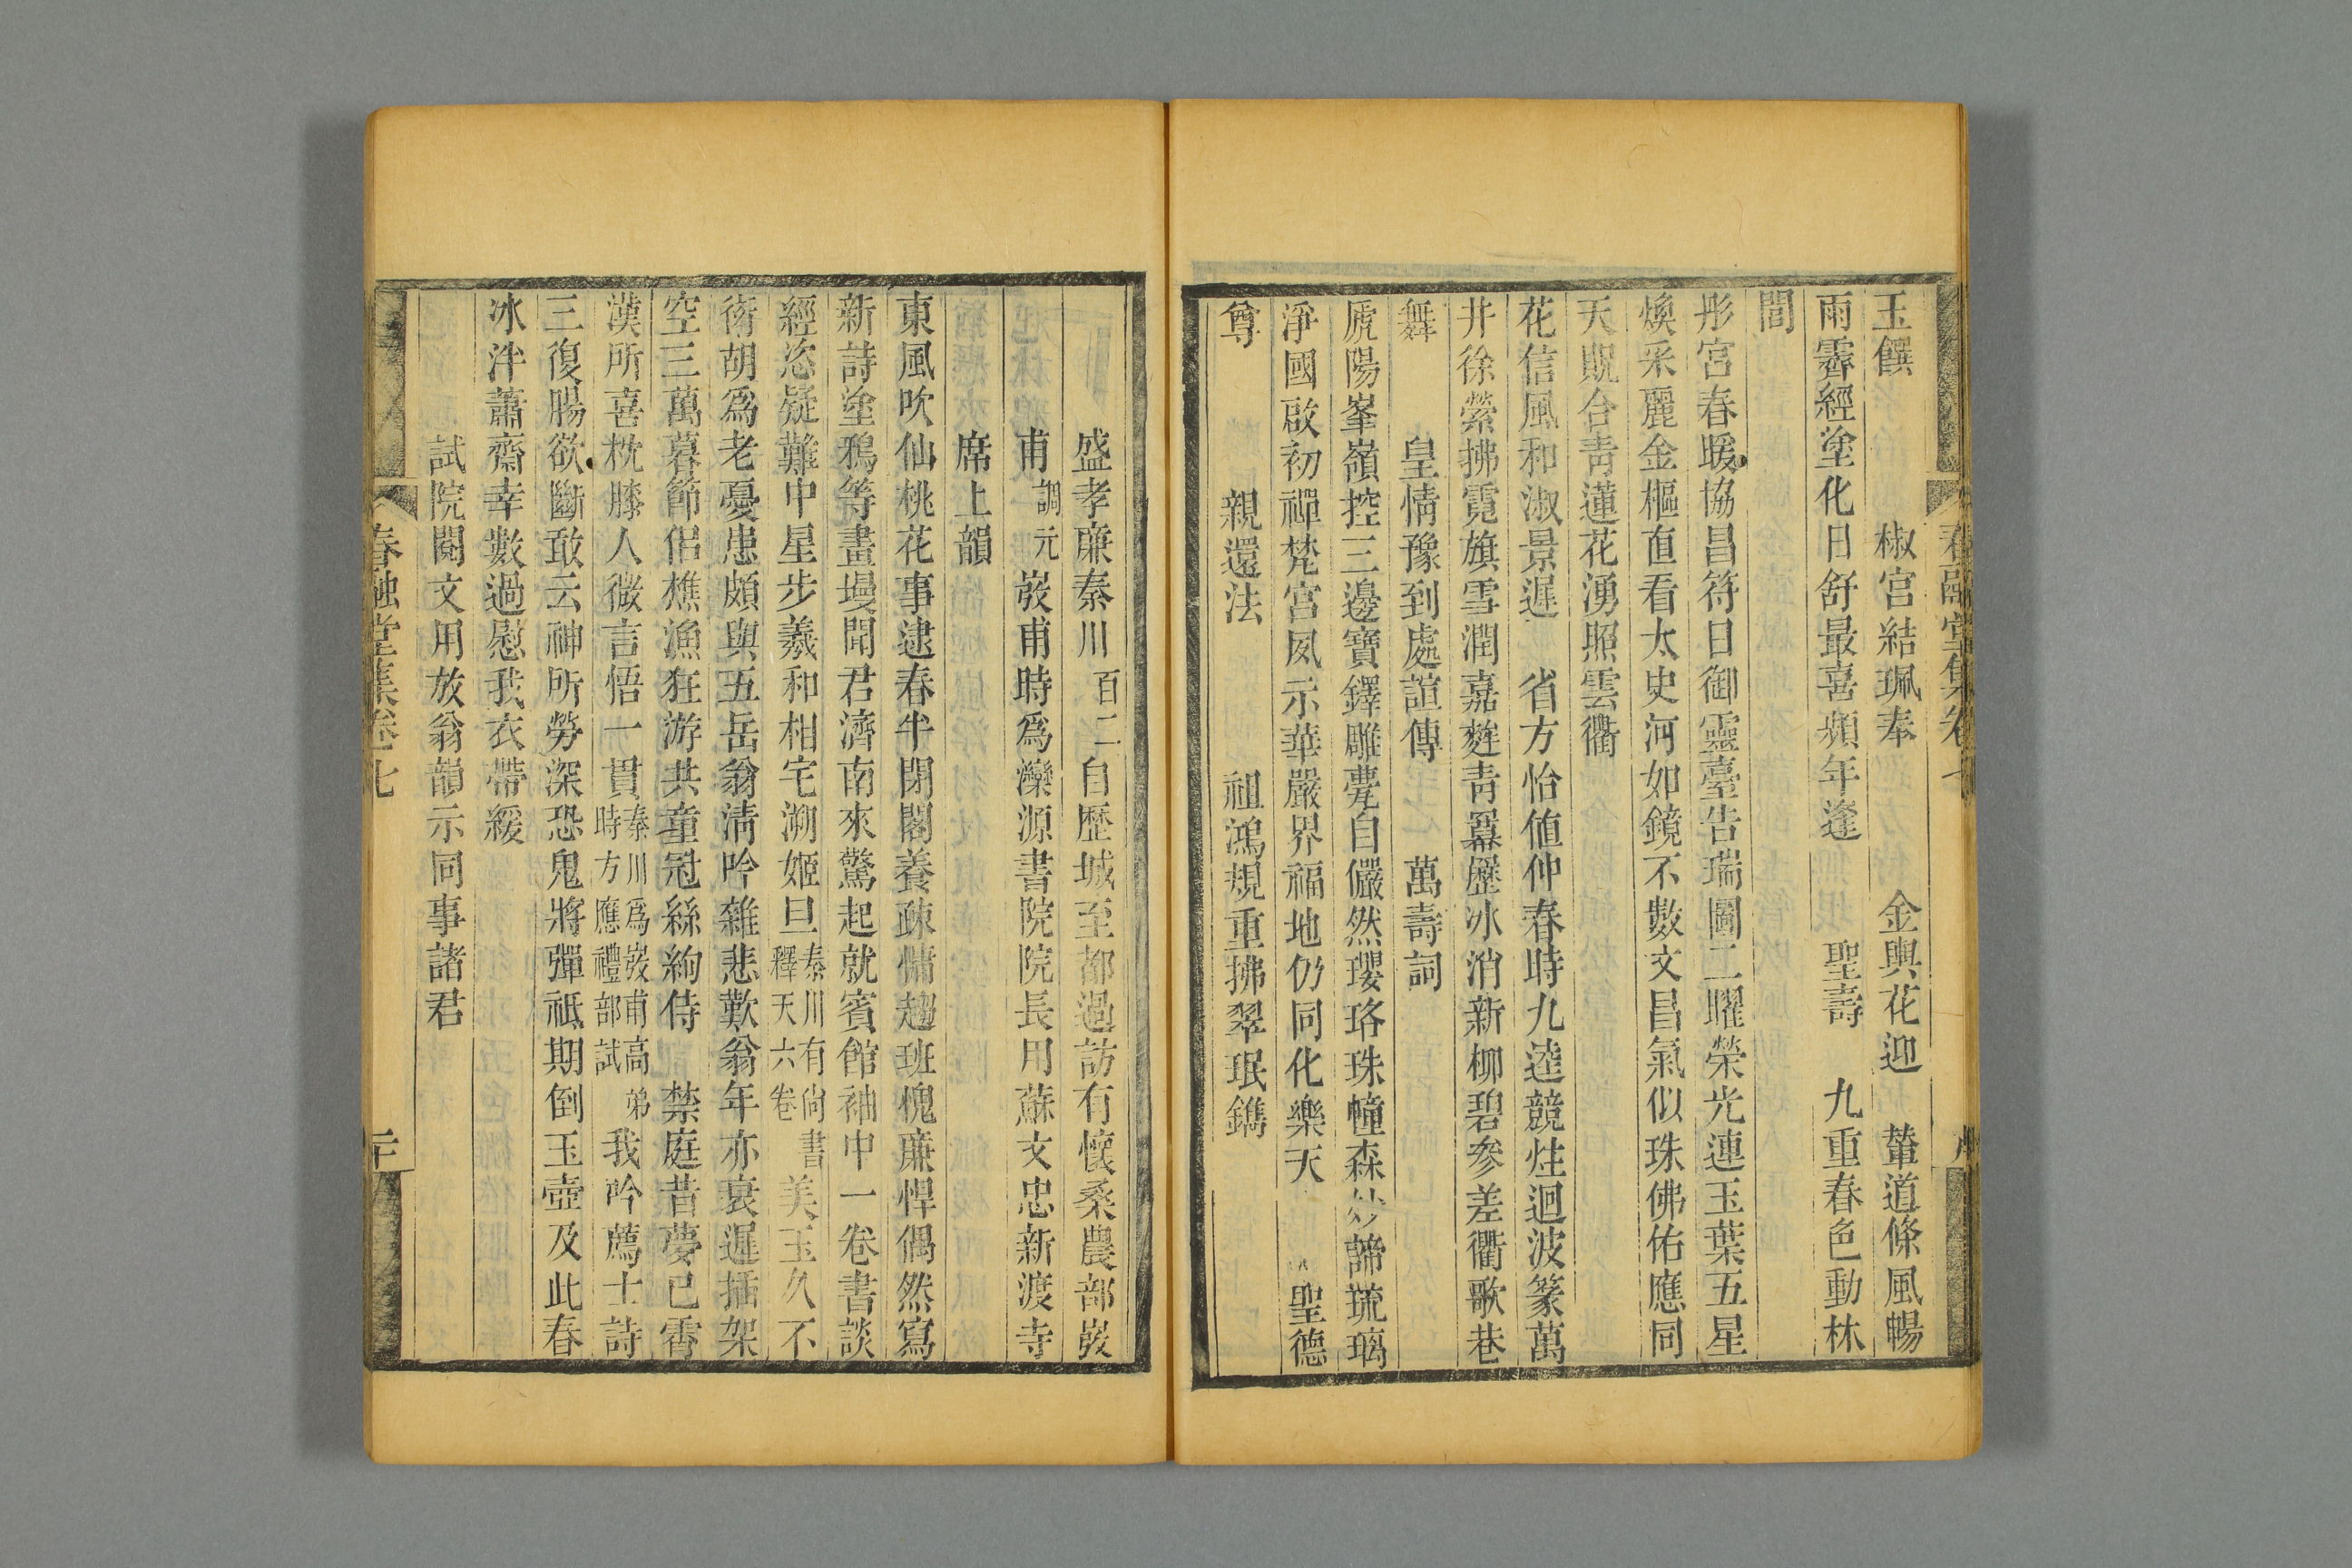 玉饌 椒宮結珮奉 金輿花迎 輦道條風暢
雨霽經塗化日舒最喜頻年逢 聖壽 九重春色動林
閭
彤宮春暖協昌符日御靈臺告瑞圖二曜榮光連玉葉五星
煥采麗金樞直看太史河如鏡不數文昌氣似珠佛佑應同
天貺合靑蓮花湧照雲衢
花信風和淑景遲 省方怡値仲春時九逵競炷迴波篆萬
井徐縈拂霓旗雪潤嘉麰靑羃歷冰消新柳碧參差衢歌巷
舞 皇情豫到處諠傳 萬壽詞
虒陽峯嶺控三邊寶鐸雕甍自儼然瓔珞珠幢森妙諦琉璃
淨國啟初禪梵宮夙示華嚴界福地仍同化樂天 聖德
尊 親還法 祖鴻規重拂翠珉鐫
春融堂集卷七
盛孝廉秦川百二自歷城至都過訪有懷桑農部㲄
甫調元㲄甫時爲濼源書院院長用蘇文忠新渡寺
席上韻
東風吹仙桃花事逮春半閉閣養疎慵趨班愧廉悍偶然寫
新詩塗鴉等畫墁聞君濟南來驚起就賓館袖中一卷書談
經恣疑難中星步羲和相宅溯姬旦秦川有尙書釋天六卷美玉久不
衒胡爲老憂患頗與五岳翁淸吟雜悲歎翁年亦衰遲插架
空三萬暮節侶樵漁狂游共童冠絲絇侍 禁庭昔夢已霄
漢所喜枕膝人微言悟一貫秦川爲㲄甫高弟時方應禮部試我吟薦士詩
三復腸欲斷敢云神所勞深恐鬼將彈祗期倒玉壺及此春
冰泮蕭齋幸數過慰我衣帶緩
試院閱文用放翁韻示同事諸君
春融堂集卷七